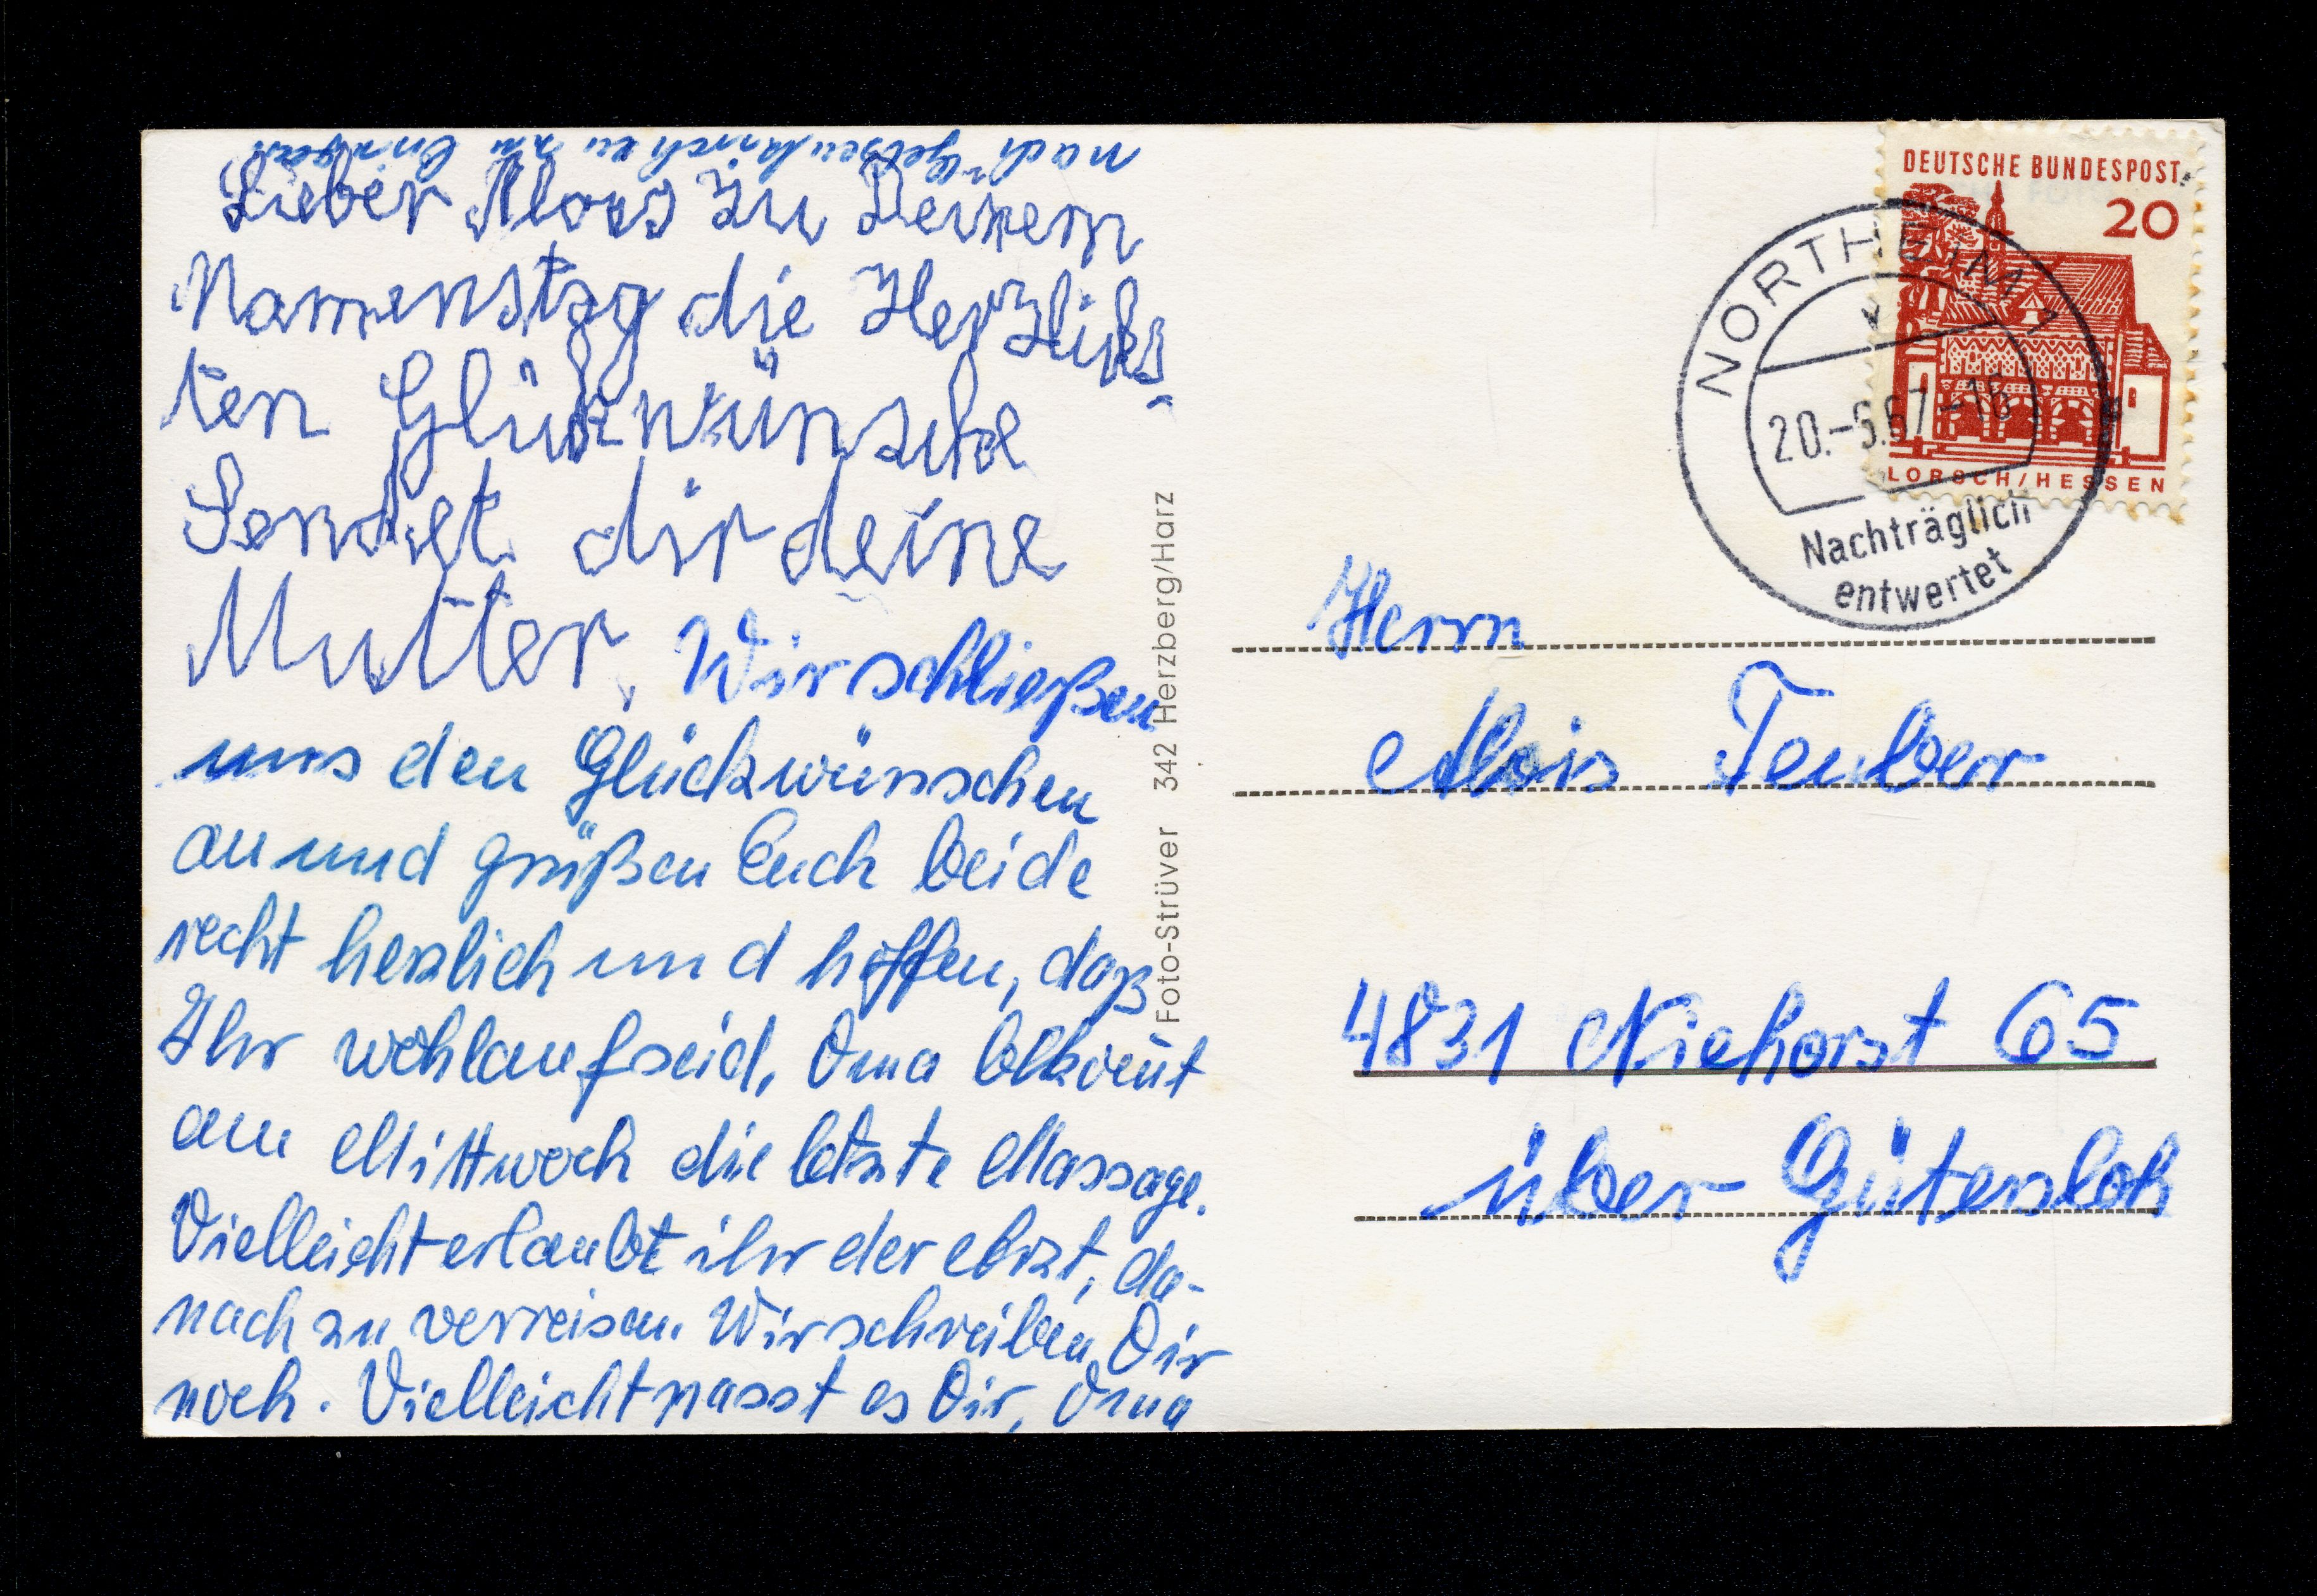 Lieber Alois Zu Deinem
Namenstag die Herzlichs-
ten Glückwünsche
Sendet dir deine
Mutter, Wir schließen
uns den Glückwünschen
an und grüßen Euch beide
recht herzlich und hoffen, daß
Ihr wohlauf seid. Oma bekommt
am Mittwoch die letzte Massage.
Vielleicht erlaubt ihr der Arzt, da-
nach zu verreisen. Wir schreiben Dir
noch. Vielleicht passt es Dir, Oma
nach Gelsenkirchen zu bringen
Foto-Strüver 342 Herzberg/Harz
DEUTSCHE BUNDESPOST
20
LORSCH/HESSEN
NORTHEIM 1
20.-6.67-16
Nachträglich
entwertet
Herrn
Alois Teuber
4831 Niehorst 65
über Gütersloh